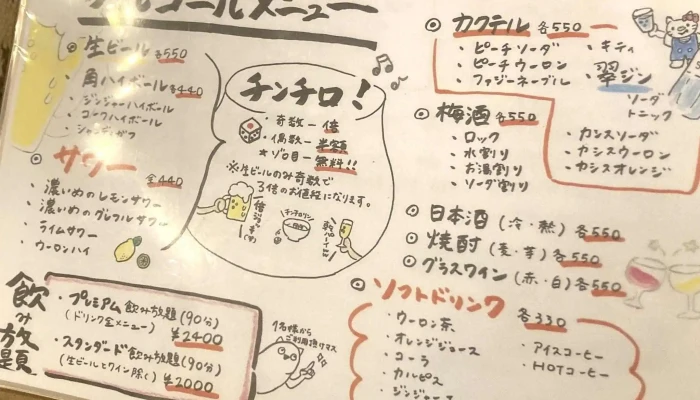 アルコールメニュー
生ビール 各550
角ハイボール 各440
・ジンジャーハイボール
・コークハイボール
・シャンディガフ
サワー 全440
・濃いめのレモンサワー
・濃いめのグレフルサワー
・ライムサワー
・ウーロンハイ
チンチロ!
・奇数ー倍
・偶数ー半額
★ゾロ目ー無料!!
※生ビールのみ奇数で
3倍のお値段になります。
チンチロリン
飲み放題
・プレミアム飲み放題(90分)
(ドリンク全メニュー)
¥2400
・スタンダード飲み放題(90分)
(生ビールとワイン除く)
¥2000
1名様から
ご利用頂けマス
カクテル 各550
・ピーチソーダ
・ピーチウーロン
・ファジーネーブル
・キティ
・翠ジン
ソーダ
トニック
・カシスソーダ
・カシスウーロン
・カシスオレンジ
梅酒 各550
・ロック
・水割り
・お湯割り
・ソーダ割り
日本酒(冷・熱)各550
焼酎(麦・芋)各550
グラスワイン(赤・白)各550
ソフトドリンク 各330
・ウーロン茶
・オレンジジュース
・コーラ
・カルピス
・アイスコーヒー
・HOTコーヒー